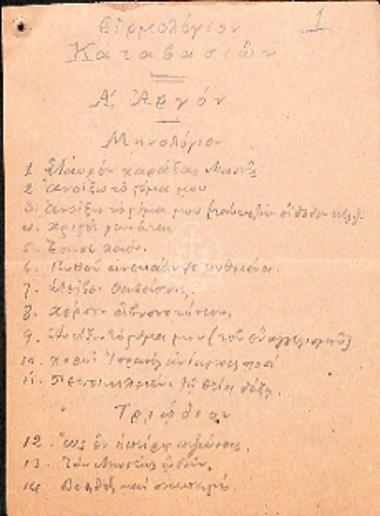 1
Εἱρμολόγιον
Καταβασιῶν
Α. Ἀργόν
Μηνολόγιον
1 Σταυρὸν χαράξας Μωσῆς
2 Ἀνοίξω τὸ στόμα μου
3. Ἀνοίξω τὸ στόμα μου
4. Χριστὸς γεννᾶται
5. Ἔσωσε λαόν.
6.
7. Στείβει θαλάσσης
8. Χέρσον
9. Ἀνοίξω τὸ στόμα μου (τοῦ εὐαγγελισμοῦ)
10. Χοροὶ Ἰσραὴλ ἀνίκμοις ποσί
11. τῇ θείᾳ δόξῃ
Τριῴδιον
12. Ὡς ἐν ἠπείρῳ πεζεύσας.
13. Τὴν Μωσέως ᾠδήν,
14. Βοηθὸς καὶ σκεπαστής